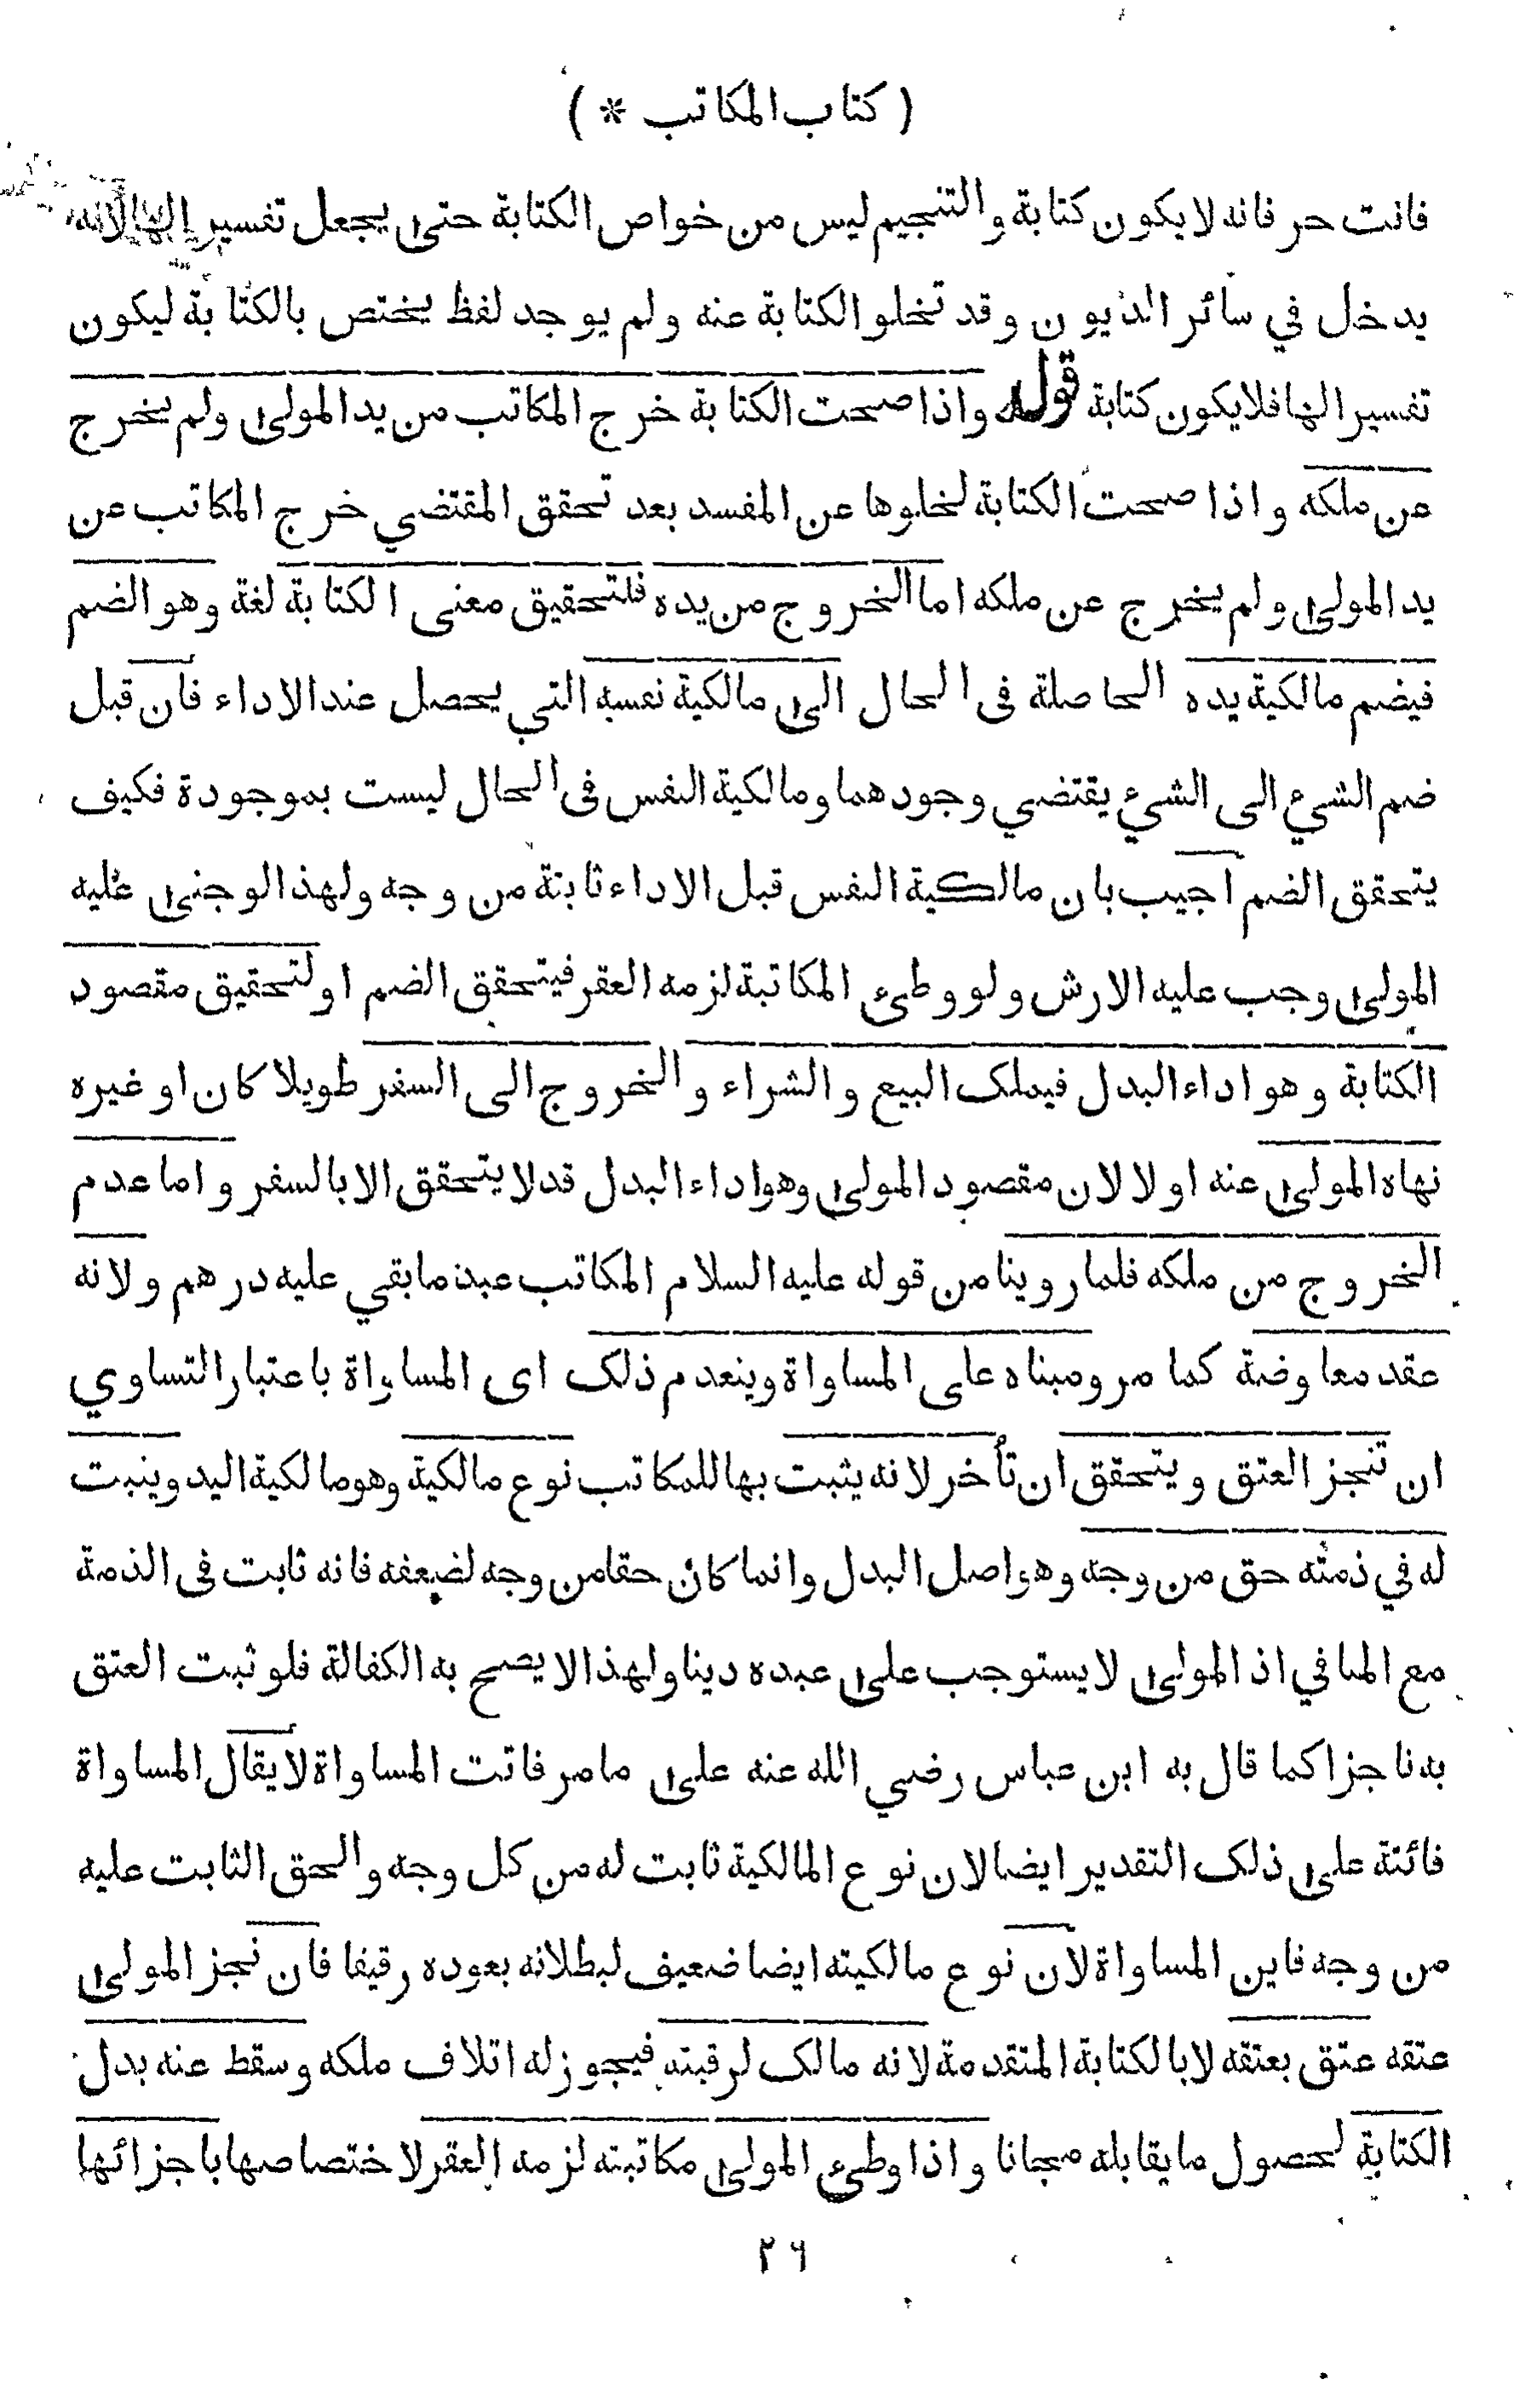 ( كتاب المكاتب * )
فانت حر فانه لا يكون كتابة والتنجيم ليس من خواص الكتابة حتى يجعل تفسيرا لها لانه
يدخل في سائر الديون وقد تخلو الكتابة عنه ولم يوجد لفظ يختص بالكتابة ليكون
تفسيرا لها فلا يكون كتابة قوله واذا صحت الكتابة خرج المكاتب من يد المولى ولم يخرج
عن ملكه واذا صحت الكتابة لخلوها عن المفسد بعد تحقق المقتضي خرج المكاتب عن
يد المولى ولم يخرج عن ملكه اما الخروج من يده فلتحقيق معنى الكتابة لغة وهو الضم
فيضم مالكية يده الحاصلة في الحال الى مالكية نفسه التي يحصل عند الاداء فان قيل
ضم الشيء الى الشيء يقتضي وجودهما ومالكية النفس في الحال ليست بموجودة فكيف
يتحقق الضم اجيب بان مالكية النفس قبل الاداء ثابتة من وجه ولهذا لو جنى عليه
المولى وجب عليه الارش ولو وطىء المكاتبة لزمه العقر فيتحقق الضم او لتحقيق مقصود
الكتابة وهو اداء البدل فيملك البيع والشراء والخروج الى السفر طويلا كان او غيره
نهاه المولى عنه او لا لان مقصود المولى وهو اداء البدل قد لا يتحقق الا بالسفر واما عدم
الخروج من ملكه فلما روينا من قوله عليه السلام المكاتب عبد ما بقي عليه درهم ولانه
عقد معاوضة كما مر ومبناه على المساواة وينعدم ذلك اى المساواة باعتبار التساوي
ان تنجز العتق ويتحقق ان تأخر لانه يثبت بها للمكاتب نوع مالكية وهو مالكية اليد ويثبت
له في ذمته حق من وجه وهو اصل البدل وانما كان حقا من وجه لضعفه فانه ثابت في الذمة
مع المنافي اذ المولى لا يستوجب على عبده دينا ولهذا لا يصح به الكفالة فلو ثبت العتق
به ناجزا كما قال به ابن عباس رضي الله عنه على ما مر فاتت المساواة لا يقال المساواة
فائتة على ذلك التقدير ايضا لان نوع المالكية ثابت له من كل وجه والحق الثابت عليه
من وجه فاين المساواة لان نوع مالكيته ايضا ضعيف لبطلانه بعوده رقيقا فان نجز المولى
عتقه عتق بعتقه لا بالكتابة المتقدمة لانه مالك لرقبته فيجوز له اتلاف ملكه وسقط عنه بدل
الكتابة لحصول ما يقابله مجانا واذا وطىء المولى مكاتبته لزمه العقر لاختصاصها باجزائها
٢٦